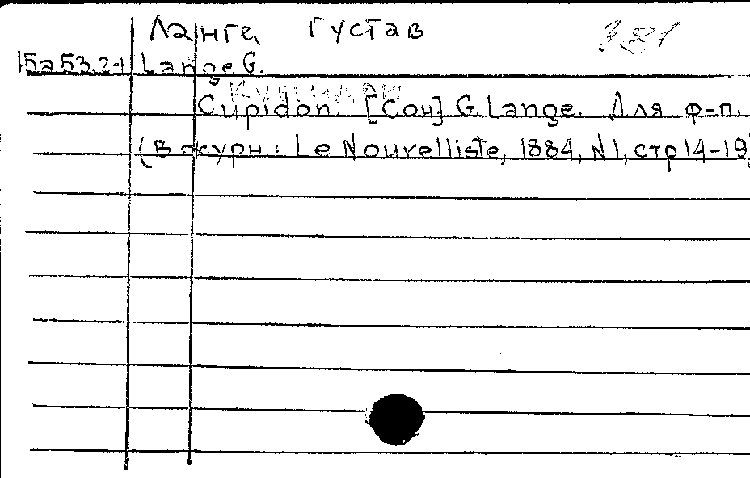 Ланге, Густав
Lange G.
Купидон
Cupidon. [Соч] G. Lange. Для ф-п.
(В журн: Le Nouvelliste, 1884, N1, стр 14-19)